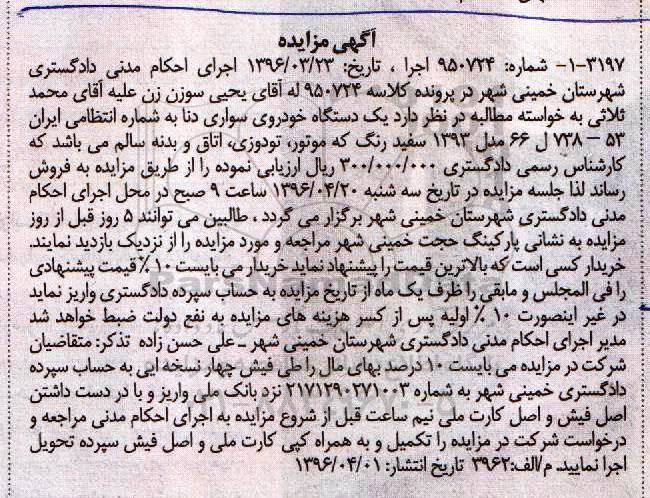 آگهی مزایده
۱-۳۱۹۷- شماره: ۹۵۰۷۲۴ اجرا ، تاریخ: ۱۳۹۶/۰۳/۲۳ اجرای احکام مدنی دادگستری
شهرستان خمینی شهر در پرونده کلاسه ۹۵۰۷۲۴ له آقای یحیی سوزن زن علیه آقای محمد
ثلاثی به خواسته مطالبه در نظر دارد یک دستگاه خودروی سواری دنا به شماره انتظامی ایران
۵۳ – ۷۳۸ ل ۶۶ مدل ۱۳۹۳ سفید رنگ که موتور، تودوزی، اتاق و بدنه سالم می باشد که
کارشناس رسمی دادگستری ۳۰۰/۰۰۰/۰۰۰ ریال ارزیابی نموده را از طریق مزایده به فروش
رساند لذا جلسه مزایده در تاریخ سه شنبه ۱۳۹۶/۰۴/۲۰ ساعت ۹ صبح در محل اجرای احکام
مدنی دادگستری شهرستان خمینی شهر برگزار می گردد ، طالبین می توانند ۵ روز قبل از روز
مزایده به نشانی پارکینگ حجت خمینی شهر مراجعه و مورد مزایده را از نزدیک بازدید نمایند.
خریدار کسی است که بالاترین قیمت را پیشنهاد نماید خریدار می بایست ۱۰ ٪ قیمت پیشنهادی
را فی المجلس و مابقی را ظرف یک ماه از تاریخ مزایده به حساب سپرده دادگستری واریز نماید
در غیر اینصورت ۱۰ ٪ اولیه پس از کسر هزینه های مزایده به نفع دولت ضبط خواهد شد
مدیر اجرای احکام مدنی دادگستری شهرستان خمینی شهر ــ علی حسن زاده تذکر: متقاضیان
شرکت در مزایده می بایست ۱۰ درصد بهای مال را طی فیش چهار نسخه ایی به حساب سپرده
دادگستری خمینی شهر به شماره ۲۱۷۱۲۹۰۲۷۱۰۰۳ نزد بانک ملی واریز و با در دست داشتن
اصل فیش و اصل کارت ملی نیم ساعت قبل از شروع مزایده به اجرای احکام مدنی مراجعه و
درخواست شرکت در مزایده را تکمیل و به همراه کپی کارت ملی و اصل فیش سپرده تحویل
اجرا نمایید. م/الف:۳۹۶۲ تاریخ انتشار: ۱۳۹۶/۰۴/۰۱